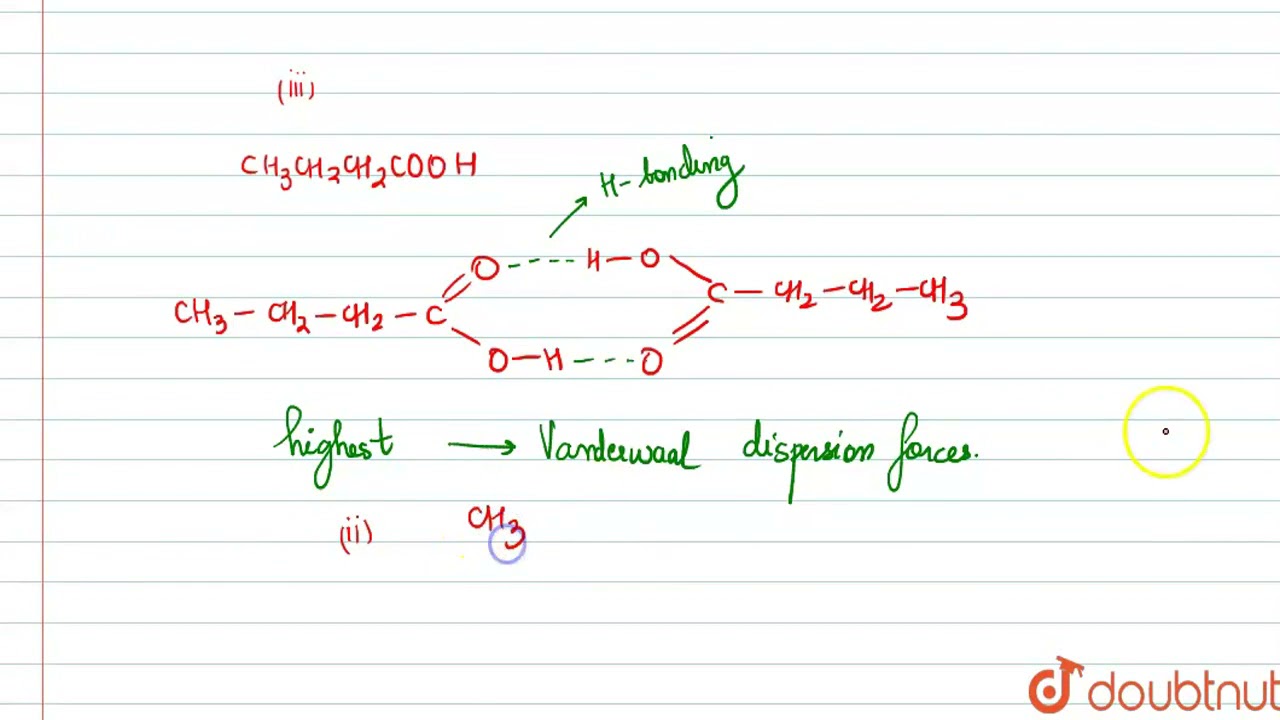 (iii)
CH3CH2CH2COOH
H-bonding
O ---- H-O
CH3-CH2-CH2-C C-CH2-CH2-CH3
O-H ---O
highest → Vanderwaal dispersion forces.
(ii) CH3
doubtnut